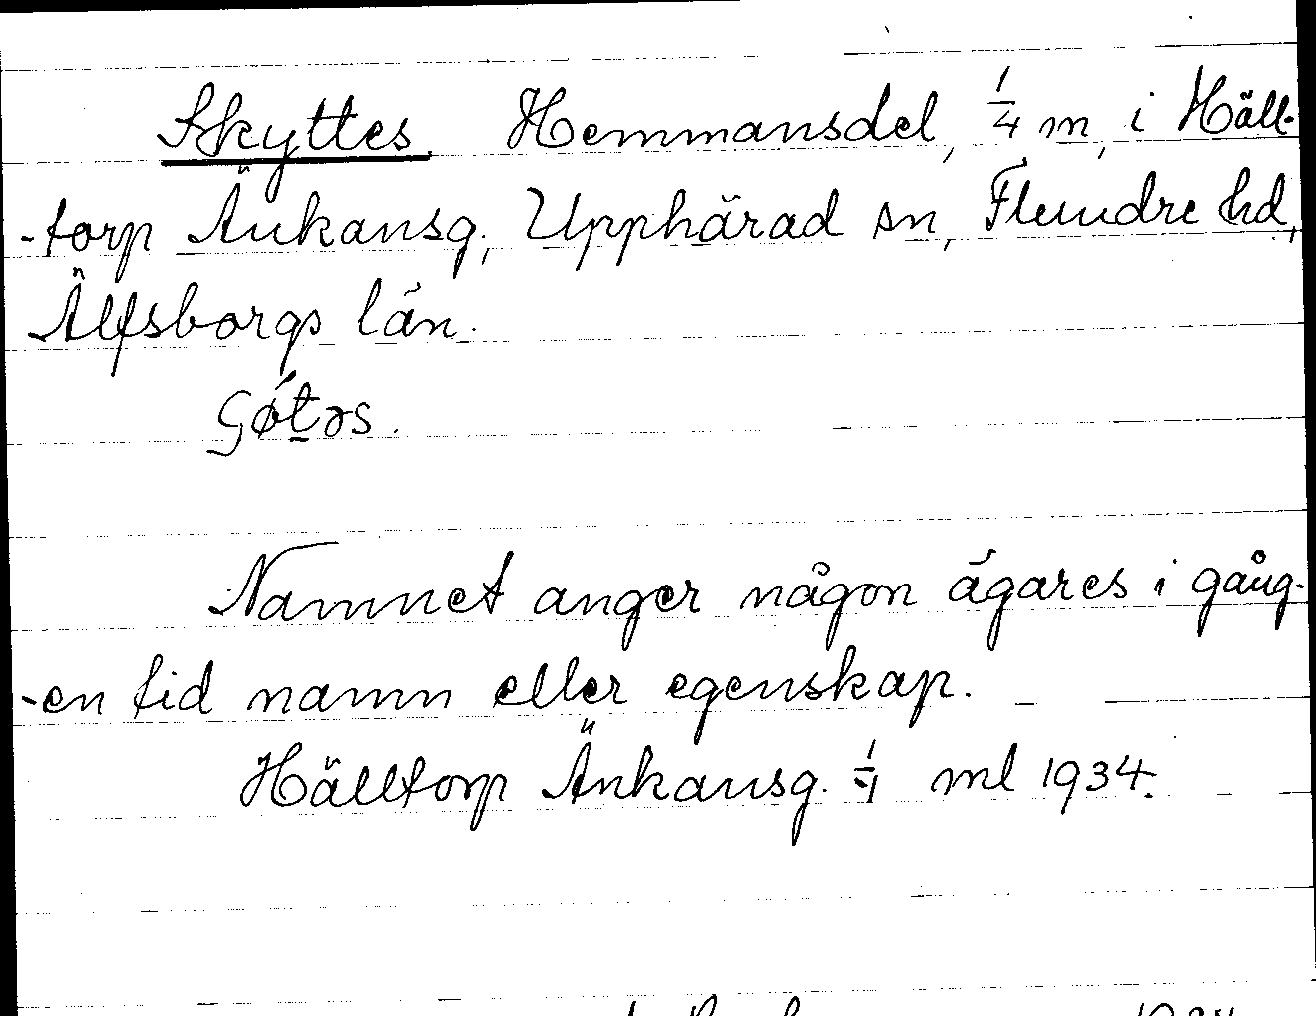 Skyttes. Hemmansdel, 1/4 m, i Häll-
-torp Änkansg., Upphärad sn, Flundre hd,
Älfsborgs län.
Gǿtəs.
Namnet anger någon ägares i gång-
-en tid namn eller egenskap.
Hälltorp Änkansg. 1/4 ml 1934.